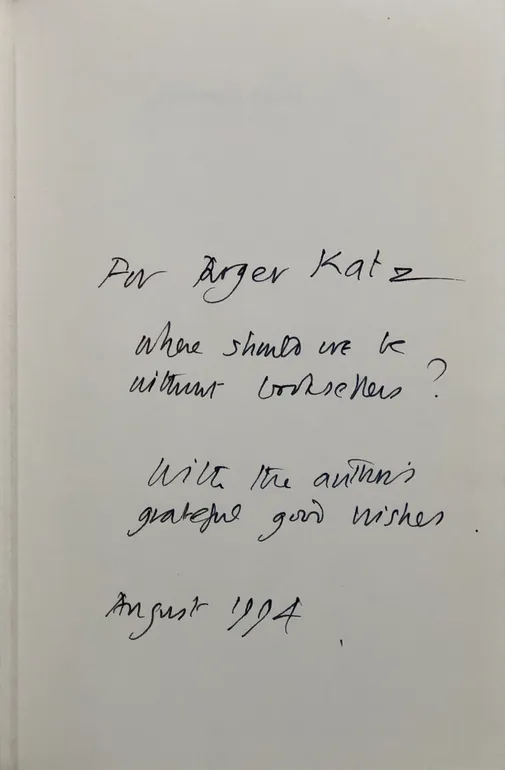 For Roger Katz
Where should we be
without booksellers?
With the author's
grateful good wishes
August 1994